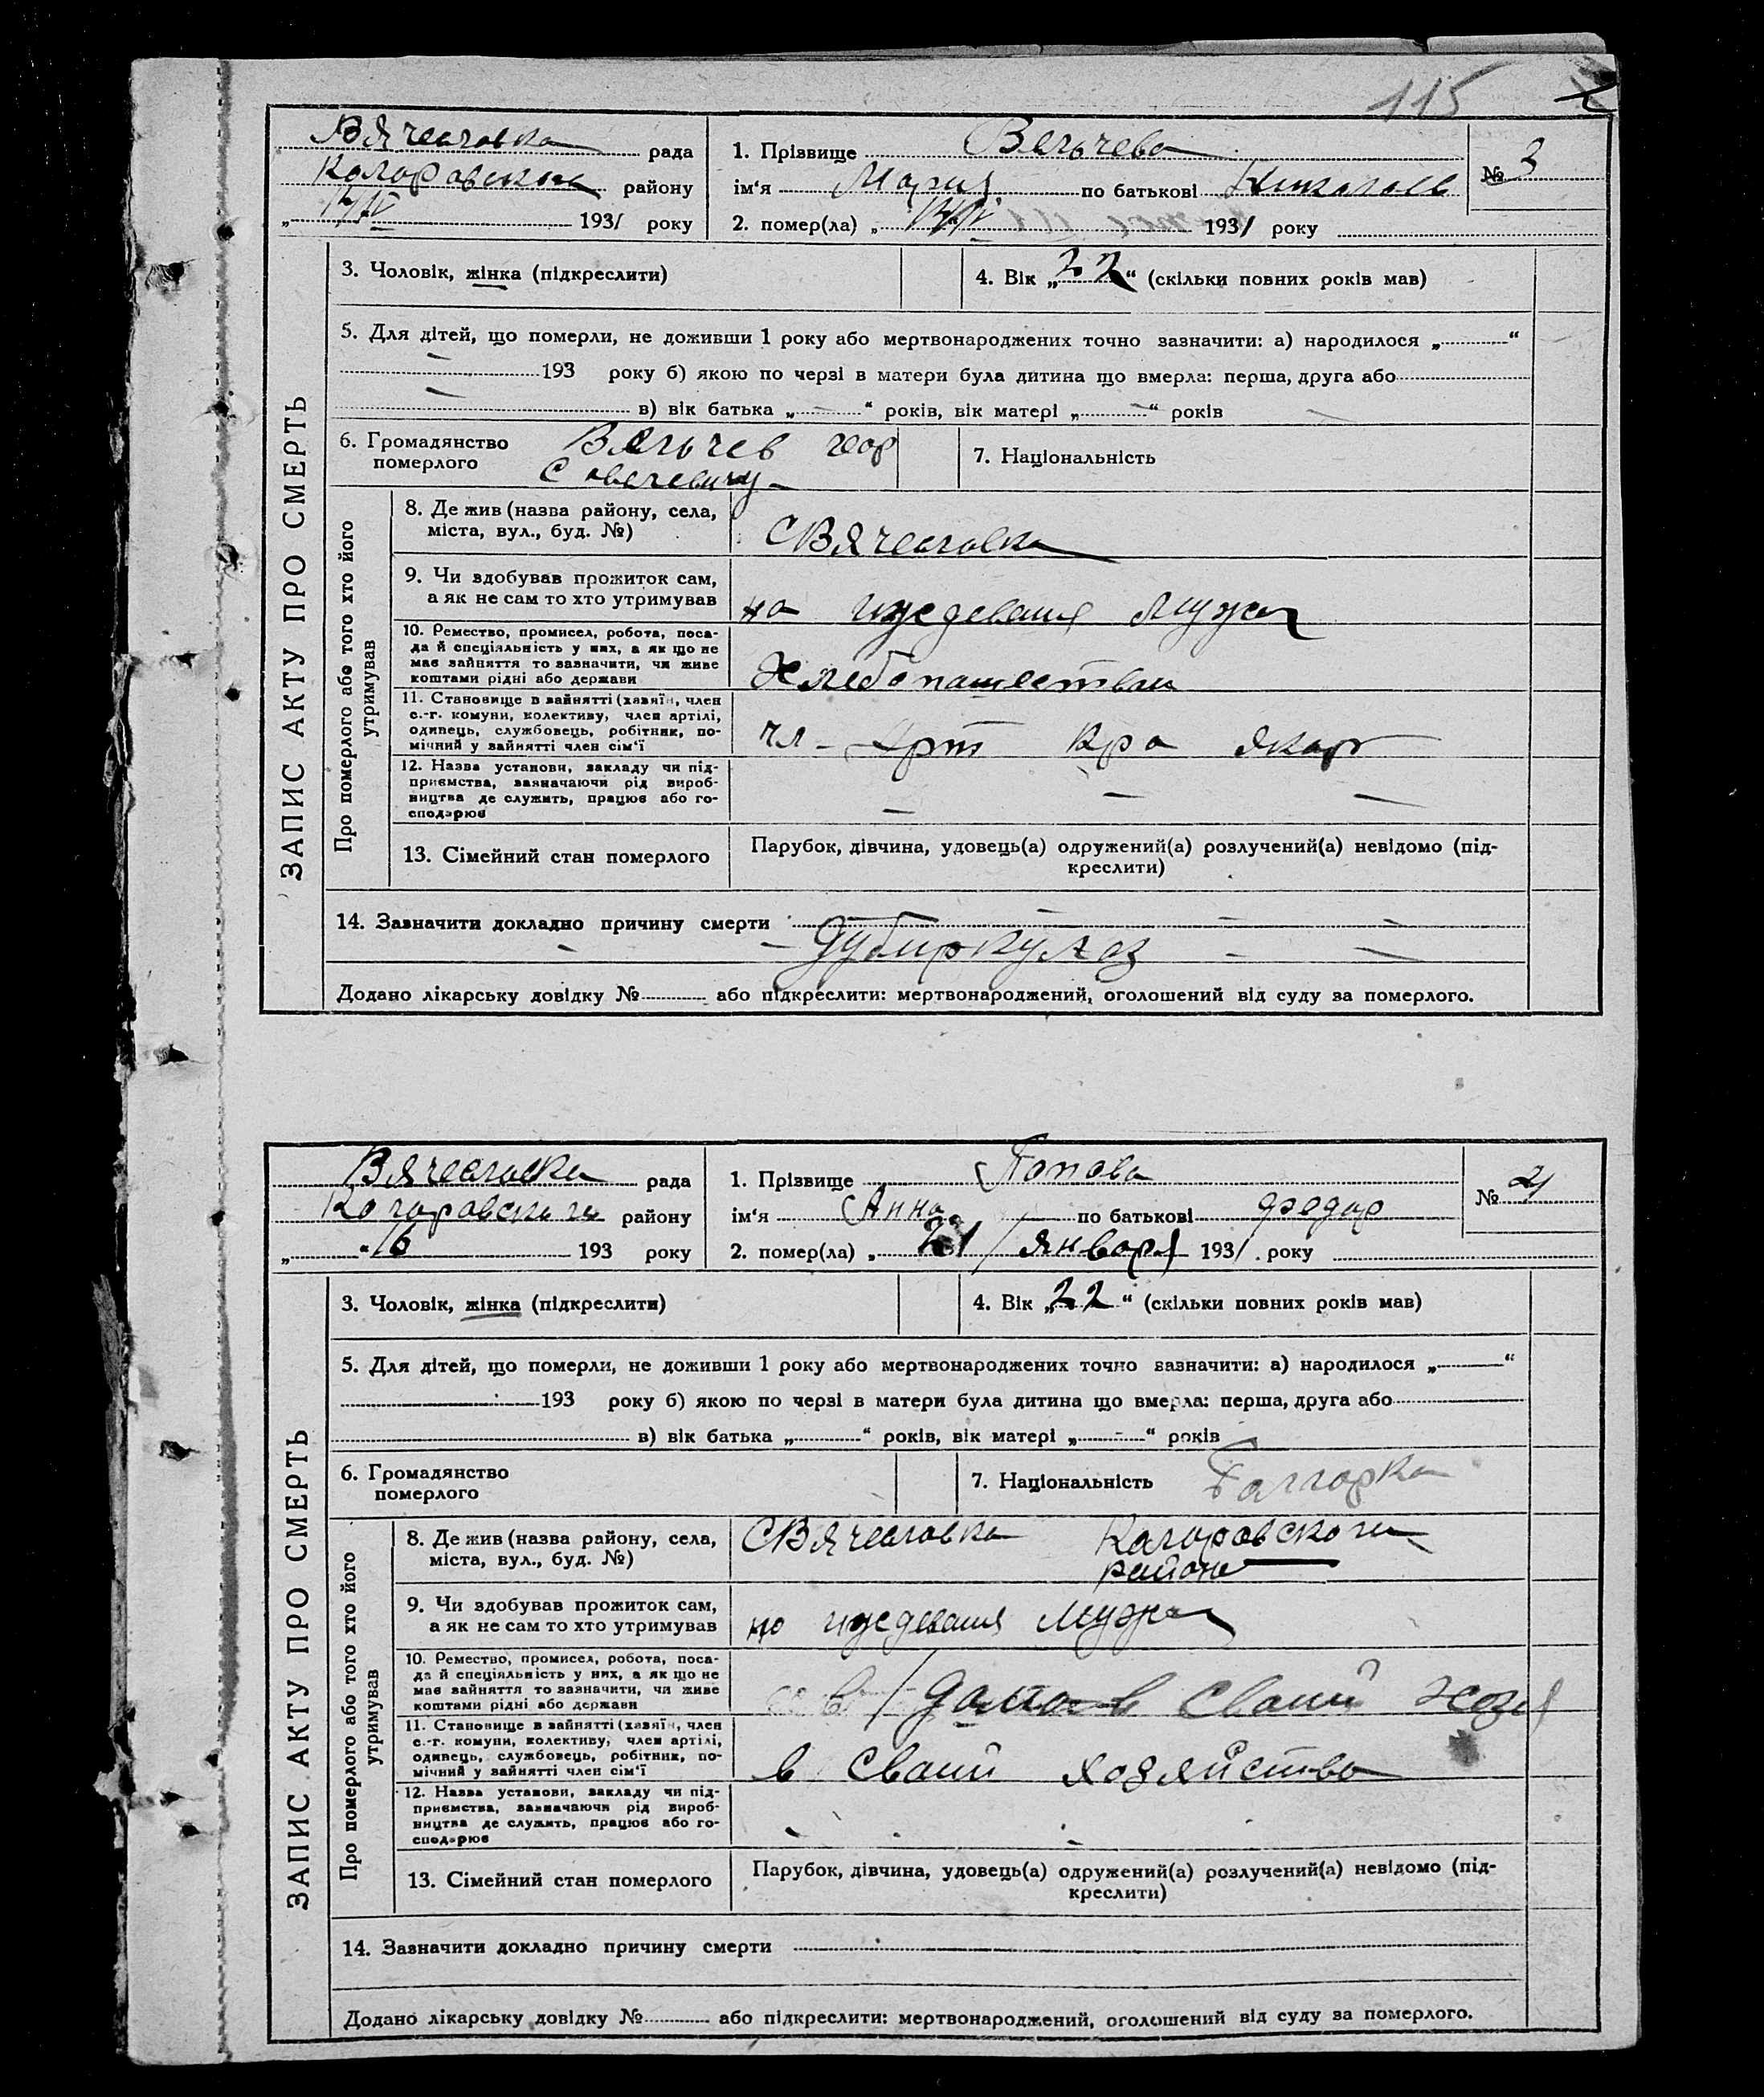 115
Вячеславка рада
Коларовского району
„ 1931 року
1. Прізвище Вельчева
ім‘я Мария по батькові Николаев
2. помер(ла) „ 1931 року
№ 3
ЗАПИС АКТУ ПРО СМЕРТЬ
3. Чоловік, жінка (підкреслити)
4. Вік „22“ (скільки повних років мав)
5. Для дітей, що померли, не доживши 1 року або мертвонароджених точно зазначити: а) народилося „ “
193 року б) якою по черзі в матери була дитина що вмерла: перша, друга або
в) вік батька „ – “ років, вік матері „ – “ років
6. Громадянство Вельчев геор
померлого
7. Національність
Про померлого або того хто його
утримував
8. Де жив (назва району, села,
міста, вул., буд. №)
С Вячеславка
9. Чи здобував прожиток сам,
а як не сам то хто утримував
на иждевания мужа
10. Ремество, промисел, робота, поса-
да й спеціяльність у них, а як що не
має зайняття то зазначити, чи живе
коштами рідні або держави
Хлебопашество
11. Становище в зайнятті (хазяїн, член
с.-г. комуни, колективу, член артілі,
одинець, службовець, робітник, по-
мічний у зайнятті член сім‘ї
чл – Арт
12. Назва установи, закладу чи під-
приємства, зазначаючи рід вироб-
ництва де служить, працює або го-
сподарює
– – –
13. Сімейний стан померлого
Парубок, дівчина, удовець(а) одружений(а) розлучений(а) невідомо (під-
креслити)
14. Зазначити докладно причину смерти
Дубиркулоз
Додано лікарську довідку № або підкреслити: мертвонароджений, оголошений від суду за померлого.
Вячеславка рада
Коларовского району
„ 16 193 року
1. Прізвище Попова
ім‘я Анна по батькові Федор
2. помер(ла) „ 21 / января 1931 року
№ 4
ЗАПИС АКТУ ПРО СМЕРТЬ
3. Чоловік, жінка (підкреслити)
4. Вік „22“ (скільки повних років мав)
5. Для дітей, що померли, не доживши 1 року або мертвонароджених точно зазначити: а) народилося „ “
193 року б) якою по черзі в матери була дитина що вмерла: перша, друга або
в) вік батька „ “ років, вік матері „ – “ років
6. Громадянство
померлого
7. Національність Болгорка
Про померлого або того хто його
утримував
8. Де жив (назва району, села,
міста, вул., буд. №)
С Вячеславка Коларовского
района
9. Чи здобував прожиток сам,
а як не сам то хто утримував
на иждевания мужа
10. Ремество, промисел, робота, поса-
да й спеціяльність у них, а як що не
має зайняття то зазначити, чи живе
коштами рідні або держави
в своий хозя
11. Становище в зайнятті (хазяїн, член
с.-г. комуни, колективу, член артілі,
одинець, службовець, робітник, по-
мічний у зайнятті член сім‘ї
в своий хозяйство
12. Назва установи, закладу чи під-
приємства, зазначаючи рід вироб-
ництва де служить, працює або го-
сподарює
13. Сімейний стан померлого
Парубок, дівчина, удовець(а) одружений(а) розлучений(а) невідомо (під-
креслити)
14. Зазначити докладно причину смерти
Додано лікарську довідку № або підкреслити: мертвонароджений, оголошений від суду за померлого.